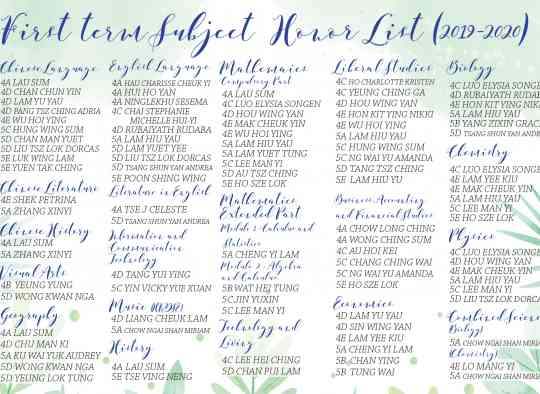 First term Subject Honor List (2019-2020)
Chinese Language
4A LAU SUM
4D CHAN CHUN YIN
4D LAM YU YAU
4D PANG TSZ CHING ADRIA
4E WU HOI YING
5C HUNG WING SUM
5D CHAN MAN YUET
5D LIU TSZ LOK DORCAS
5E LUK WING LAM
5E YUEN TAK CHING
Chinese Literature
4E SHEK PETRINA
5A ZHANG XINYI
Chinese History
4A LAU SUM
5A ZHANG XINYI
Visual Arts
4B YEUNG YUNG
5D WONG KWAN NGA
Geography
4A LAU SUM
4D CHU MAN KI
5A KU WAI YUK AUDREY
5D WONG KWAN NGA
5D YEUNG LOK TUNG
English Language
4A HAU CHARISSE CHEUK YI
4A HUI HO YAN
4A NINGLEKHU SESEMA
4C CHAI STEPHANIE
MICHELLE HUI-YI
4D RUBAIYATH RUDABA
5A LAM HIU YAU
5D LAM YUET YEE
5D LIU TSZ LOK DORCAS
5D TSANG SHUN YAN ANDREA
5E POON SHING WING
Literature in English
4A TSE J CELESTE
5D TSANG SHUN YAN ANDREA
Information and
Communication
Technology
4D TANG YUI YING
5C YIN VICKY YUE XUAN
Music
4D LIANG CHEUK LAM
5A CHOW NGAI SHAN MIRIAM
History
4A LAU SUM
5E TSE VING NENG
Mathematics
Compulsory Part
4A LAU SUM
4C LUO ELYSIA SONGEN
4D HOU WING YAN
4E MAK CHEUK YIN
4E WU HOI YING
5A LAM HIU YAU
5A LAM YUET TUNG
5C LEE MAN YI
5D AU TSZ CHING
5E HO SZE LOK
Mathematics
Extended Part
Module 1: Calculus and
Statistics
5A CHENG YI LAM
Module 2: Algebra
and Calculus
5B WAT HEJ TUNG
5C JIN YUXIN
5C LEE MAN YI
Technology and
Living
4C LEE HEI CHING
5D CHAN PUI LAM
Liberal Studies
4C HO CHARLOTTE KRISTEN
4C YEUNG CHING GA
4D HOU WING YAN
4E HON KIT YING NIKKI
4E WU HOI YING
5A LAM HIU YAU
5C HUNG WING SUM
5C NG WAI YU AMANDA
5D TANG TSZ CHING
5E LAM HIU YU
Business, Accounting
and Financial Studies
4A CHOW LONG CHING
4A WONG CHING SUM
4C AU HOI KEI
5C CHANG CHING WAI
5C NG WAI YU AMANDA
5E HO SZE LOK
Economics
4D LAM YU YAU
4D SIN WING YAN
4E LAM YEE KIU
5A CHENG YI LAM
5B CHAN YING
5B TUNG WAI
Biology
4C LUO ELYSIA SONGEN
4D RUBAIYATH RUDABA
4E HON KIT YING NIKKI
5A LAM HIU YAU
5B YANG ZIXIN GRACIA
5D TSANG SHUN YAN ANDREA
Chemistry
4C LUO ELYSIA SONGEN
4E LAM YEE KIU
4E MAK CHEUK YIN
5A LAM HIU YAU
5C LEE MAN YI
5E HO SZE LOK
Physics
4C LUO ELYSIA SONGEN
4D HOU WING YAN
4E MAK CHEUK YIN
5A LAM HIU YAU
5C LEE MAN YI
5D LIU TSZ LOK DORCAS
Combined Science
(Biology)
5A CHOW NGAI SHAN MIRIAM
(Chemistry)
4E LO MANG YI
5A CHOW NGAI SHAN MIRIAM